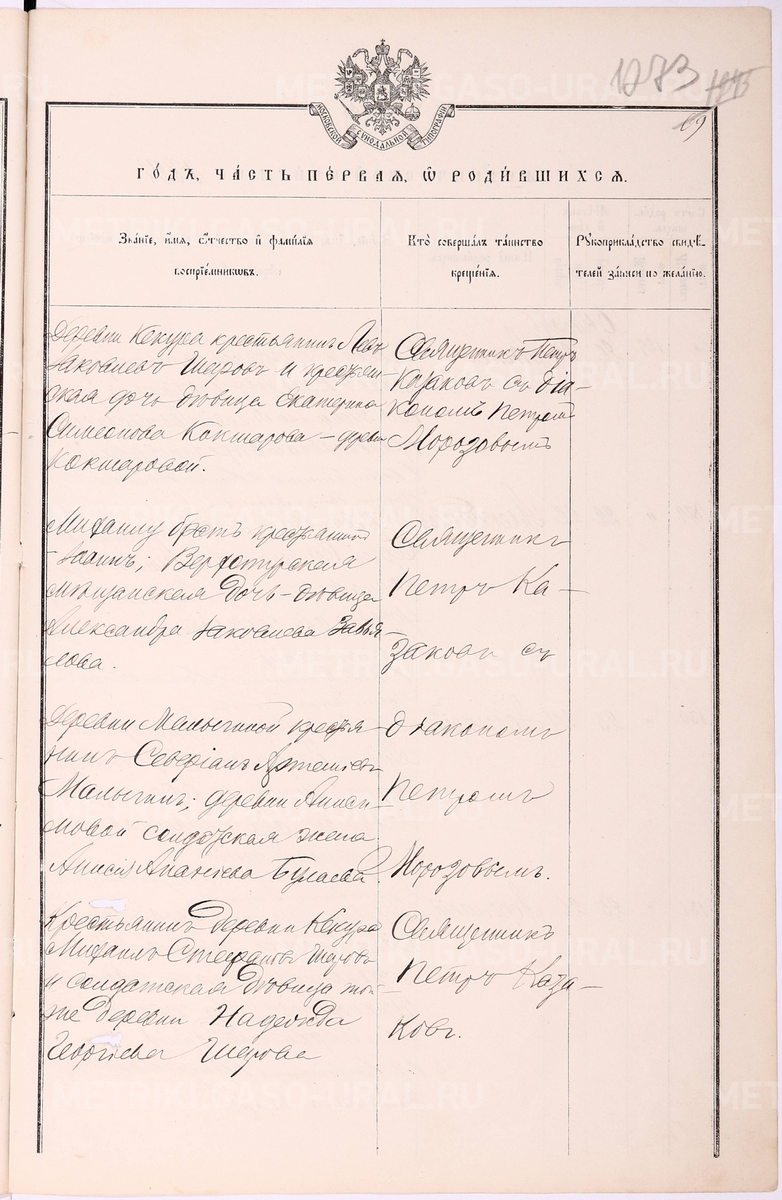 1273
МОСКОВСКОЙ СѴНОДАЛЬНОЙ ТИПОГРАФІИ
ГО́ДЪ, ЧА́СТЬ ПЕ́РВАЯ, Ѽ РОДИ́ВШИХСЯ.
Зва́нїе, и́мя, ѻ́тчество и҆ фами́лїя
воспрїе́мниковъ.
Кто̀ соверша́лъ та́инство
креще́нїя.
Рꙋкоприкла́дство свидѣ́-
телей за́писи по жела́нїю.
Деревни Кекура крестьянинъ Левъ
Іаковлевъ Шаровъ и крестьян-
ская дочь дѣвица Екатерина
Симеонова Кокшарова – дерев.
Кокшаровой.
Священникъ Петръ
Казаковъ съ діа-
кономъ Петромъ
Морозовымъ
Михаилу братъ крестьянинъ
Іоаннъ; Верхотурская
мѣщанская дочь – дѣвица
Александра Іаковлева Завья-
лова.
Священникъ
Петръ Ка-
заковъ съ
діакономъ
Петромъ
Морозовымъ.
Деревни Малыгиной крестья-
нинъ Северіанъ Артеміевъ
Малыгинъ; деревни Аниси-
мовой солдатская жена
Анисія Ананіева Булаева
Крестьянинъ деревни Кекура
Михаилъ Стефановъ Шаровъ
и солдатская дѣвица той-
же деревни Надежда
Георгіева Шарова
Священникъ
Петръ Каза-
ковъ.
METRIKI.GASO-URAL.RU